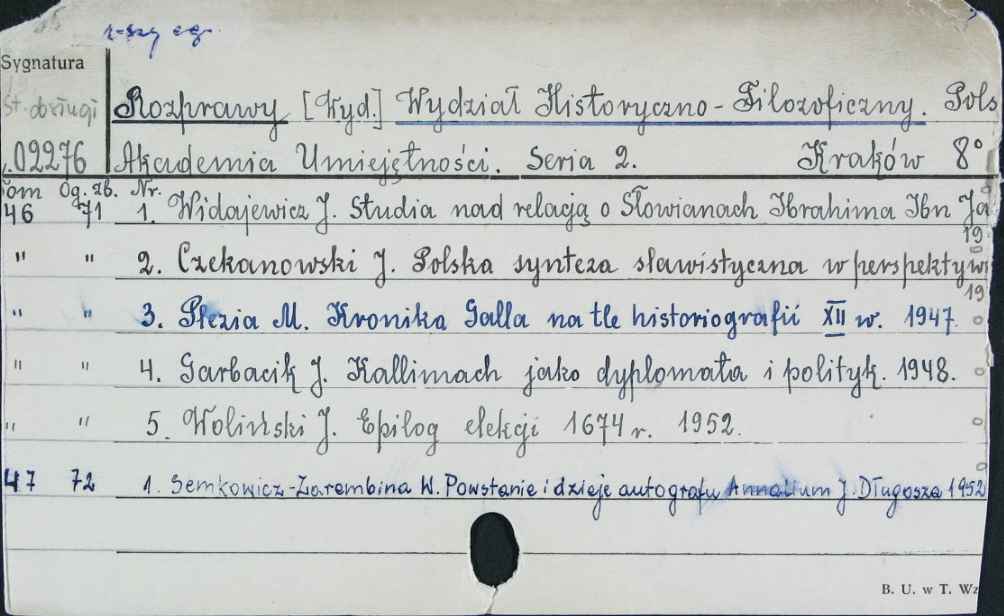 Sygnatura
St. dosługi Rozprawy [Wyd.] Wydział Historyczno-Filozoficzny. Pols
.02276 Akademia Umiejętności. Seria 2. Kraków 8°
Tom Og. zb. Nr.
46 71 1. Widajewicz J. Studia nad relacją o Słowianach Ibrahima Ibn Ja
19
" " 2. Czekanowski J. Polska synteza slawistyczna w perspektywi
19
" " 3. Plezia M. Kronika Galla na tle historiografii XII w. 1947.
" " 4. Garbacik J. Kallimach jako dyplomata i polityk. 1948.
" " 5. Woliński J. Epilog elekcji 1674 r. 1952.
47 72 1. Semkowicz-Zarembina W. Powstanie i dzieje autografu Annalium J. Długosza 1952
B. U. w T. Wz